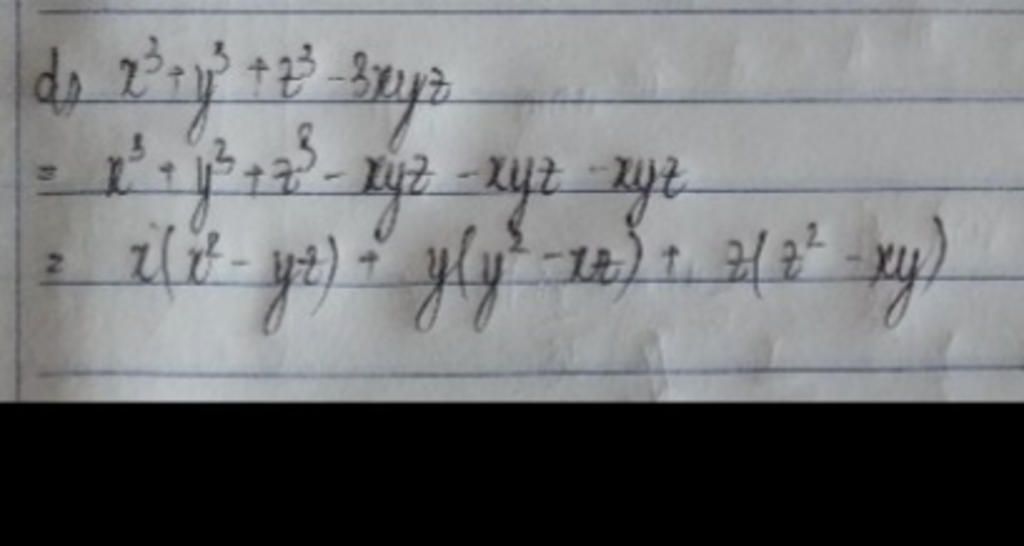 d) x³ + y³ + z³ - 3xyz
= x³ + y³ + z³ - xyz - xyz - xyz
= x(x² - yz) + y(y² - xz) + z(z² - xy)